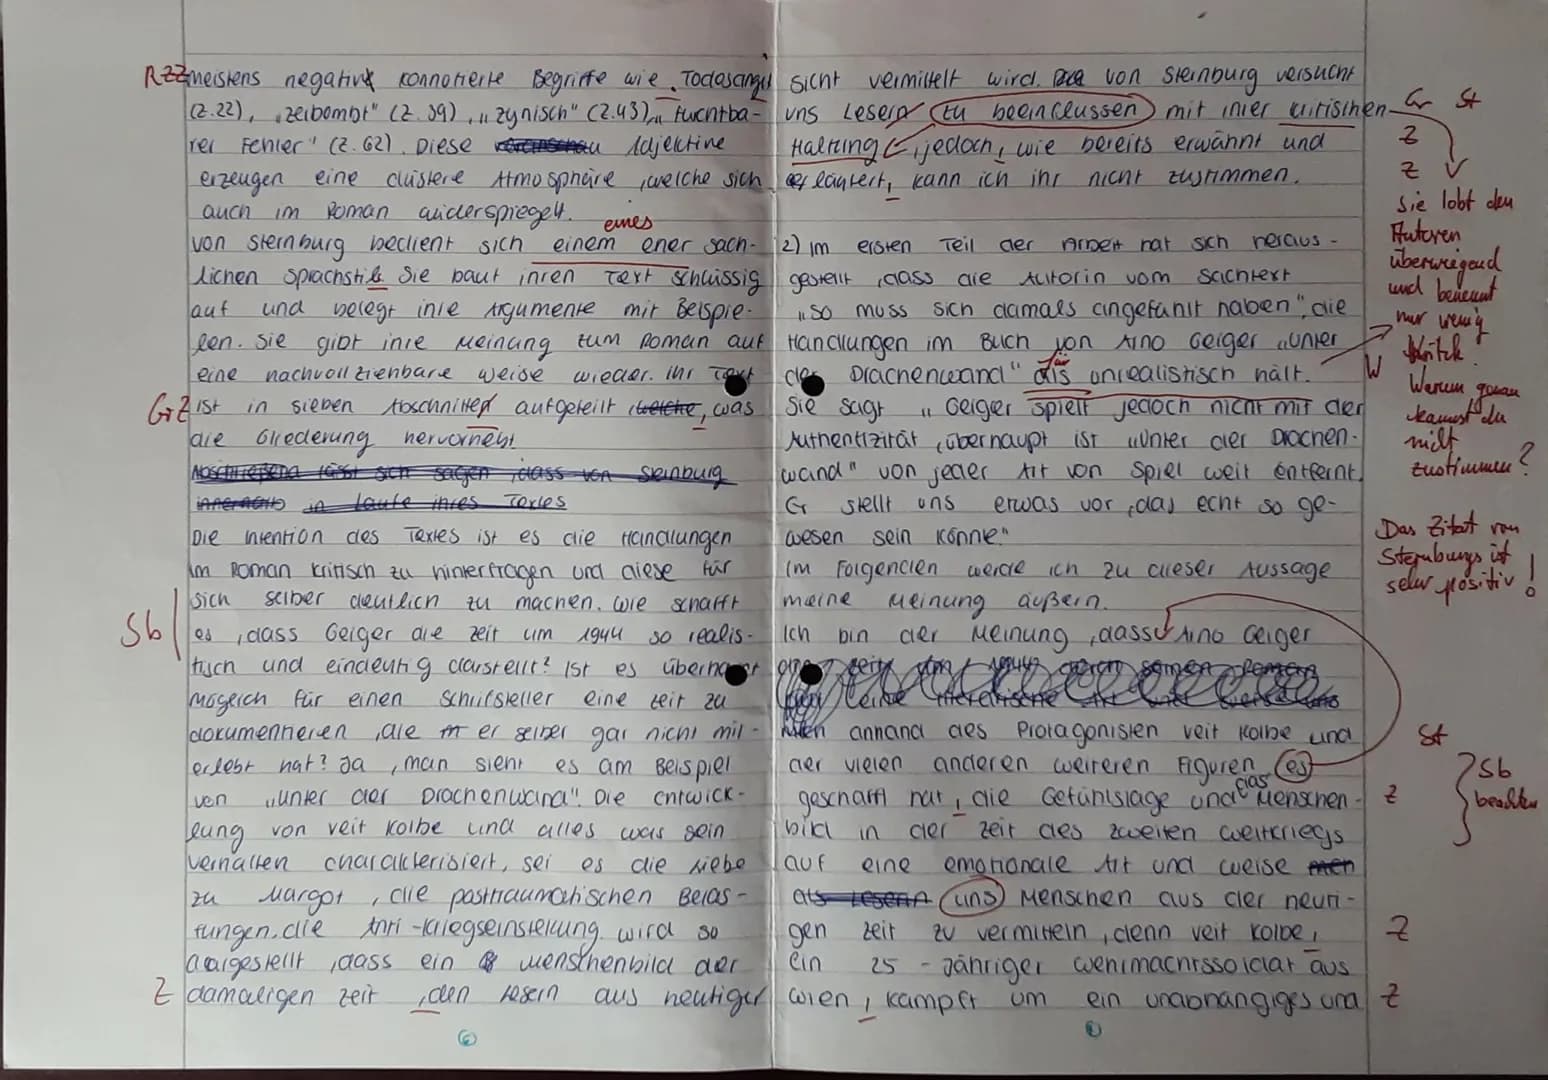 RZZ meistens negativ konnotierte Begriffe wie „Todesangst
(Z.22), „zerbombt" (Z.39), „zynisch" (Z.43), „furchtba-
rer Fehler" (Z.62). Diese Adjektive
erzeugen eine düstere Atmosphäre, welche sich
auch im Roman widerspiegelt.
eines
von Sternburg bedient sich einem eher sach-
lichen Sprachstils. Sie baut ihren Text schlüssig
auf und belegt ihre Argumente mit Beispie-
len. Sie gibt ihre Meinung zum Roman auf
eine nachvollziehbare Weise wieder. Ihr Text
GrZ ist in sieben Abschnitten aufgeteilt welche, was
die Gliederung hervorhebt.
Abschließend lässt sich sagen, dass von Sternburg
innerhalb in laufe ihres Textes
Die Intention des Textes ist es die Handlungen
im Roman kritisch zu hinterfragen und diese für
sich selber deutlich zu machen. Wie schafft
Sb es, dass Geiger die Zeit um 1944 so realis-
tisch und eindeutig darstellt? Ist es überhaupt
möglich für einen Schriftsteller eine Zeit zu
dokumentieren, die er selber gar nicht mit-
erlebt hat? Ja, man sieht es am Beispiel
von „Unter der Drachenwand". Die Entwick-
lung von Veit Kolbe und alles was sein
Verhalten charakterisiert, sei es die Liebe
zu Margot, die posttraumatischen Belas-
tungen, die Anti-Kriegseinstellung wird so
dargestellt, dass ein Menschenbild der
Z damaligen Zeit, den Lesern aus heutiger
6
Sicht vermittelt wird. von Sternburg versucht
uns Lesern zu beeinflussen mit ihrer kritischen Gr St
Haltung, jedoch, wie bereits erwähnt und Z
erläutert, kann ich ihr nicht zustimmen. Z
2) Im ersten Teil der Arbeit hat sich heraus-
gestellt, dass die Autorin vom Sachtext
„So muss sich damals angefühlt haben", die
Handlungen im Buch von Arno Geiger „Unter
für
der Drachenwand" als unrealistisch hält. W
Sie sagt „Geiger spielt jedoch nicht mit der
Authentizität, überhaupt ist „Unter der Drachen-
wand" von jeder Art von Spiel weit entfernt.
Er stellt uns etwas vor, das echt so ge-
wesen sein könnte"
Im Folgenden werde ich zu dieser Aussage
meine Meinung äußern.
Ich bin der Meinung, dass Arno Geiger
anhand des Protagonisten Veit Kolbe und
der vielen anderen weiteren Figuren es St
das
geschafft hat, die Gefühlslage und Menschen- Z
bild in der Zeit des zweiten Weltkriegs
auf eine emotionale Art und Weise
als Lesern uns Menschen aus der heuti-
gen Zeit zu vermitteln, denn Veit Kolbe, Z
ein 25-Jähriger Wehrmachtssoldat aus
Wien, kämpft um ein unabhängiges und Z
Sie lobt den
Autoren
überwiegend
und benennt
nur wenig
Kritik.
Warum genau
kannst du
nicht
zustimmen?
Das Zitat von
Sternburgs ist
sehr positiv!
Sb
beachten